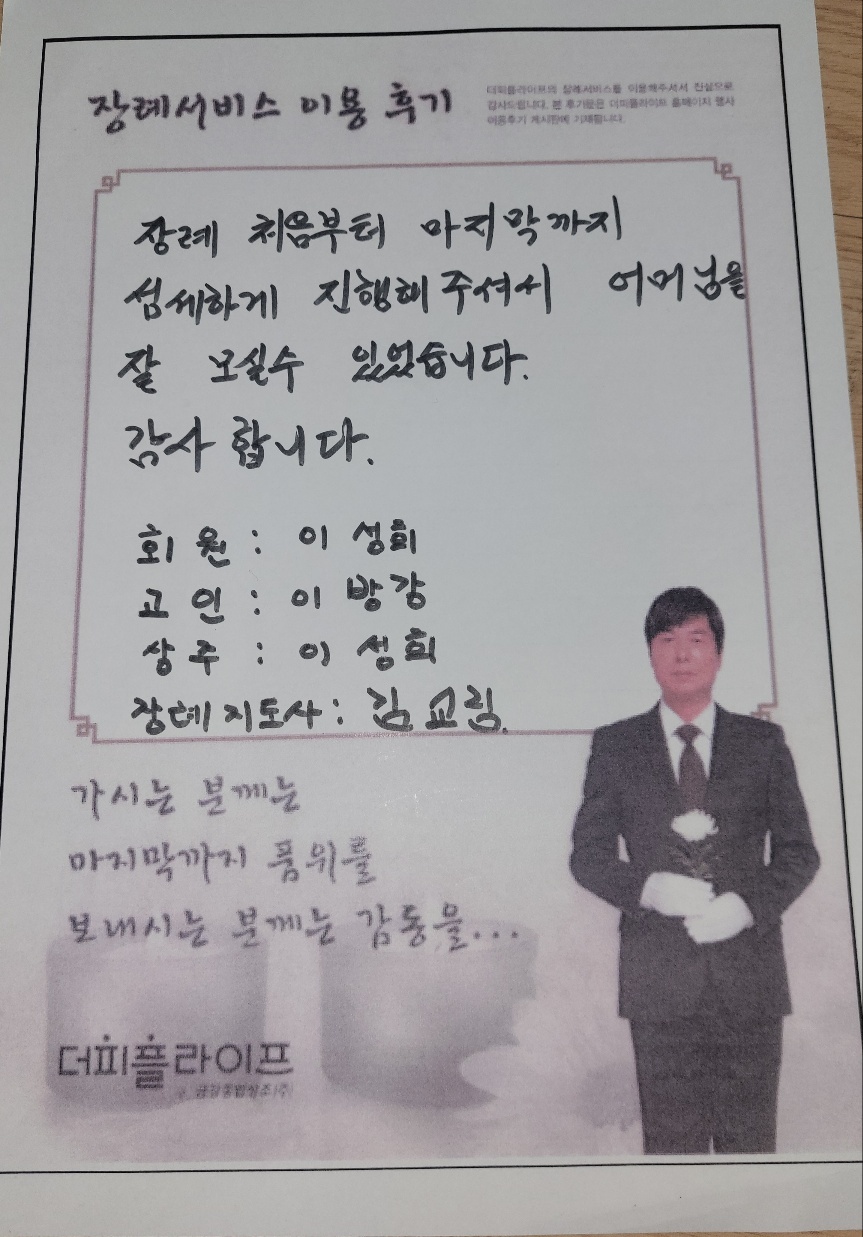 장례서비스 이용 후기
더피플라이프의 장례서비스를 이용해주셔서 진심으로
감사드립니다. 본 후기문은 더피플라이프 홈페이지 행사
이용후기 게시판에 기재됩니다.
장례 처음부터 마지막까지
섬세하게 진행해주셔서 어머님을
잘 모실수 있었습니다.
감사합니다.
회 원 : 이 성희
고 인 : 이 방강
상 주 : 이 성희
장례지도사 : 김 교림.
가시는 분께는
마지막까지 품위를
보내시는 분께는 감동을...
더피플라이프
금강종합상조(주)